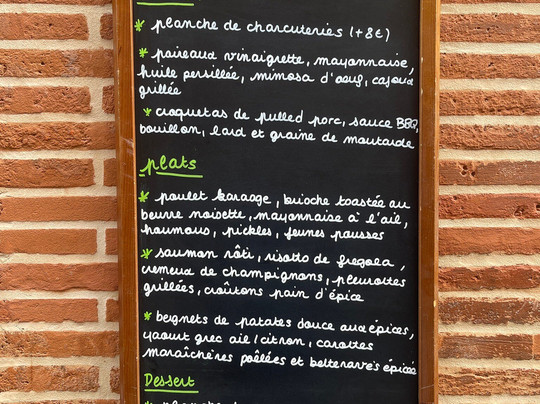 * planche de charcuteries (+8€)
* poireaux vinaigrette, mayonnaise,
huile persillée, mimosa d'oeuf, cajou
grillée
* croquetas de pulled porc, sauce BBQ,
bouillon, lard et graine de moutarde
plats
* poulet karaage, brioche toastée au
beurre noisette, mayonnaise à l'ail,
houmous, pickles, jeunes pousses
* saumon rôti, risotto de fregola,
cremeux de champignons, pleurottes
grillées, croûtons pain d'épice
* beignets de patates douce aux épices,
yaourt grec ail/citron, carottes
maraîchères poêlées et betteraves épicée
Dessert